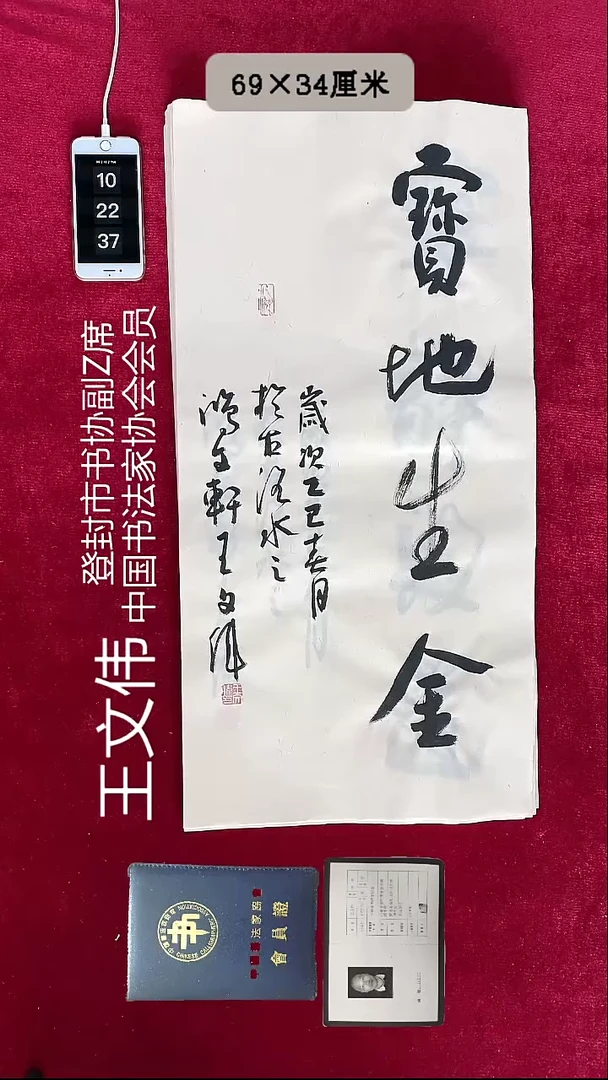 69×34厘米
10
22
37
寶地生金
歲次乙巳春月
於古洛水之
鴻文軒王文偉
登封市书协副Z席
中国书法家协会会员
王文伟
中國書法家協會
會員證